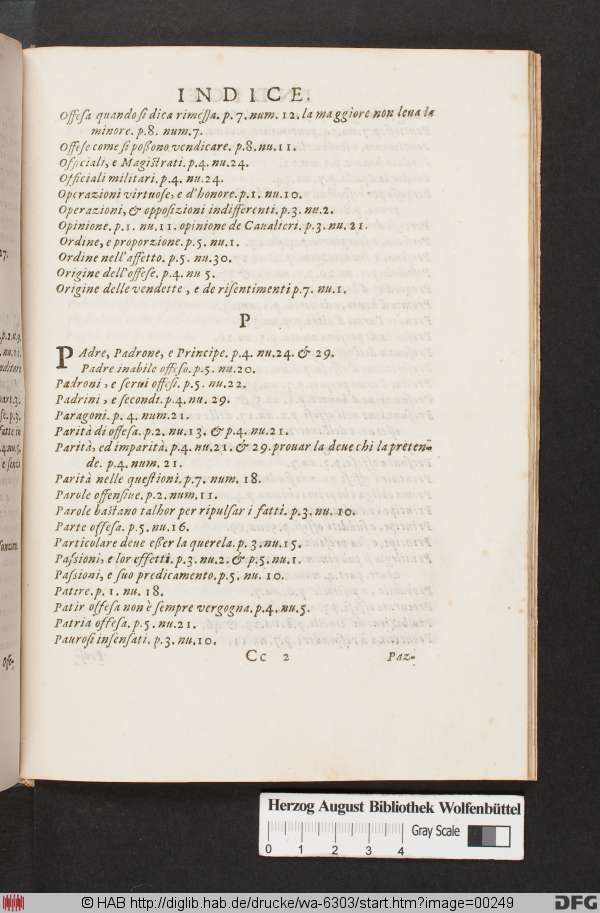 INDICE.
Offesa quando si dica rimessa. p. 7. num. 12. la maggiore non leua la
minore. p. 8. num. 7.
Offese come si possono vendicare. p. 8. nu. 11.
Officiali, e Magistrati. p. 4. nu. 24.
Officiali militari. p. 4. nu. 24.
Operazioni virtuose, e d'honore. p. 1. nu. 10.
Operazioni, & opposizioni indifferenti. p. 3. nu. 2.
Opinione. p. 1. nu. 11. opinione de Caualieri. p. 3. nu. 21.
Ordine, e proporzione. p. 5. nu. 1.
Ordine nell'affetto. p. 5. nu. 30.
Origine dell'offese. p. 4. nu 5.
Origine delle vendette, e de risentimenti p. 7. nu. 1.
P
PAdre, Padrone, e Principe. p. 4. nu. 24. & 29.
Padre inabile offeso. p. 5. nu. 20.
Padroni, e serui offesi. p. 5. nu. 22.
Padrini, e secondi. p. 4. nu. 29.
Paragoni. p. 4. num. 21.
Parità di offesa. p. 2. nu. 13. & p. 4. nu. 21.
Parità, ed imparità. p. 4. nu. 21. & 29. prouar la deue chi la preten-
de. p. 4. num. 21.
Parità nelle questioni. p. 7. num. 18.
Parole offensiue. p. 2. num. 11.
Parole bastano talhor per ripulsar i fatti. p. 3. nu. 10.
Parte offesa. p. 5. nu. 16.
Particolare deue esser la querela. p. 3. nu. 15.
Passioni, e lor effetti. p. 3. nu. 2. & p. 5. nu. 1.
Passioni, e suo predicamento. p. 5. nu. 10.
Patire. p. 1. nu. 18.
Patir offesa non è sempre vergogna. p. 4. nu. 5.
Patria offesa. p. 5. nu. 21.
Paurosi insensati. p. 3. nu. 10.
Cc 2 Paz-
Herzog August Bibliothek Wolfenbüttel
0 1 2 3 4 Gray Scale
© HAB http://diglib.hab.de/drucke/wa-6303/start.htm?image=00249
DFG